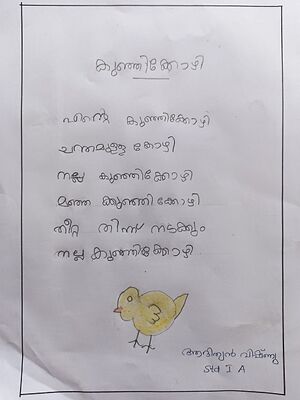 കുഞ്ഞിക്കോഴി
എന്റെ കുഞ്ഞിക്കോഴി
ചന്തമുള്ള കോഴി
നല്ല കുഞ്ഞിക്കോഴി
മഞ്ഞ കുഞ്ഞിക്കോഴി
തീറ്റ തിന്ന് നടക്കും
നല്ല കുഞ്ഞിക്കോഴി
ആദിത്യൻ വിഷ്ണു
Std I A